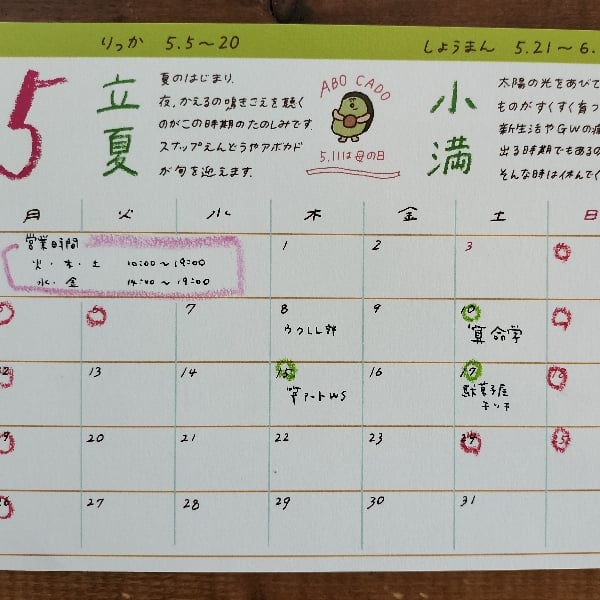 りっか 5.5～20
しょうまん 5.21～6.
5
立夏
夏のはじまり。
夜、かえるの鳴きごえを聴く
のがこの時期のたのしみです。
スナップえんどうやアボカド
が旬を迎えます。
ABO CADO
5.11は母の日
小満
太陽の光をあびて
ものがすくすく育つ
新生活やGWの疲
出る時期でもあるの
そんな時は休んでく
月 火 水 木 金 土 日
営業時間
火・木・土 10:00～19:00
水・金 14:00～19:00
1 2 3
6 7 8 9 10
ウクレレ部
算命学
12 13 14 15 16 17 18
筆アートWS
駄菓子屋
チッチ
19 20 21 22 23 24 25
26 27 28 29 30 31